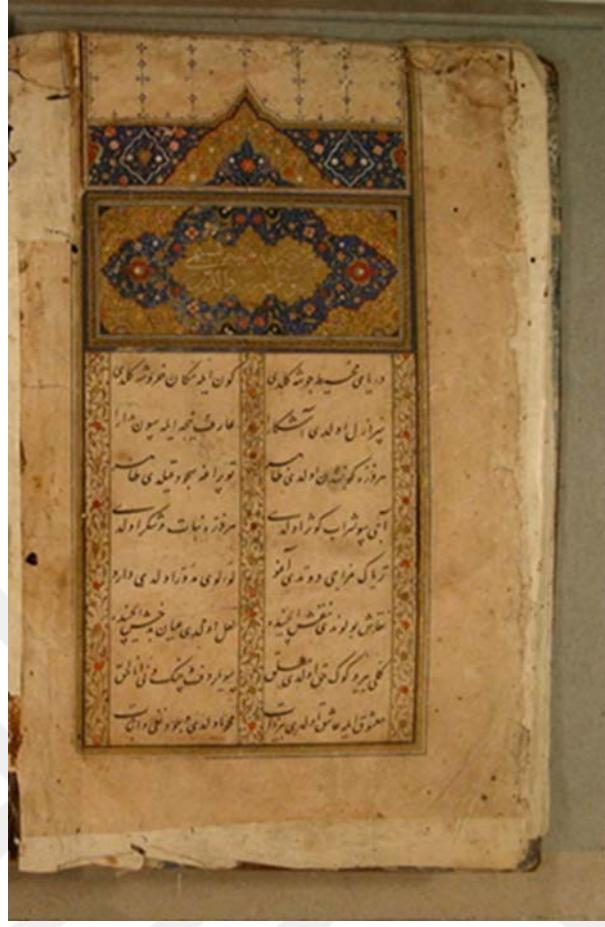 دریای محیط جوشه کلدی کون ایله مکان خروشه کلدی
سر ازل اولدی آشکارا عارف نجه ایله سون مدارا
هر ذره کونشدن اولدی ظاهر توپراغه سجود قیلدی طاهر
آجی سو شراب کوثر اولدی هر ذره نبات و شکر اولدی
تریاک مزاجی دوتدی آغو لولوی مدور اولدی دارو
نقاش بولوندی نقش ایچنده لعل اولدی عیان بدخش ایچنده
کلی یر و کوک حق اولدی مطلق سویلر دف و چنک و نی انا الحق
معشوق ایله عاشق اولدی بر ذات محو اولدی وجود نفی و اثبات